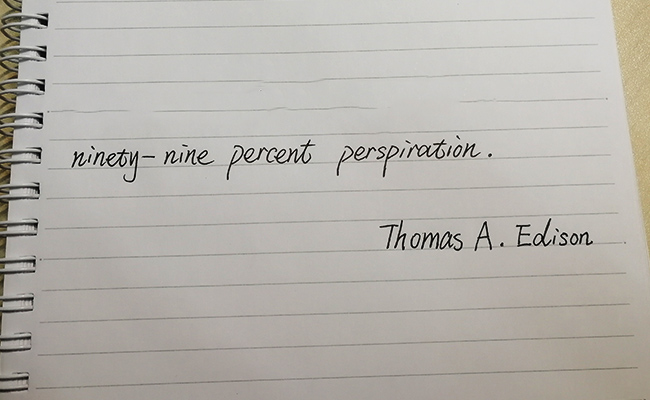 ninety-nine percent perspiration.
Thomas A. Edison